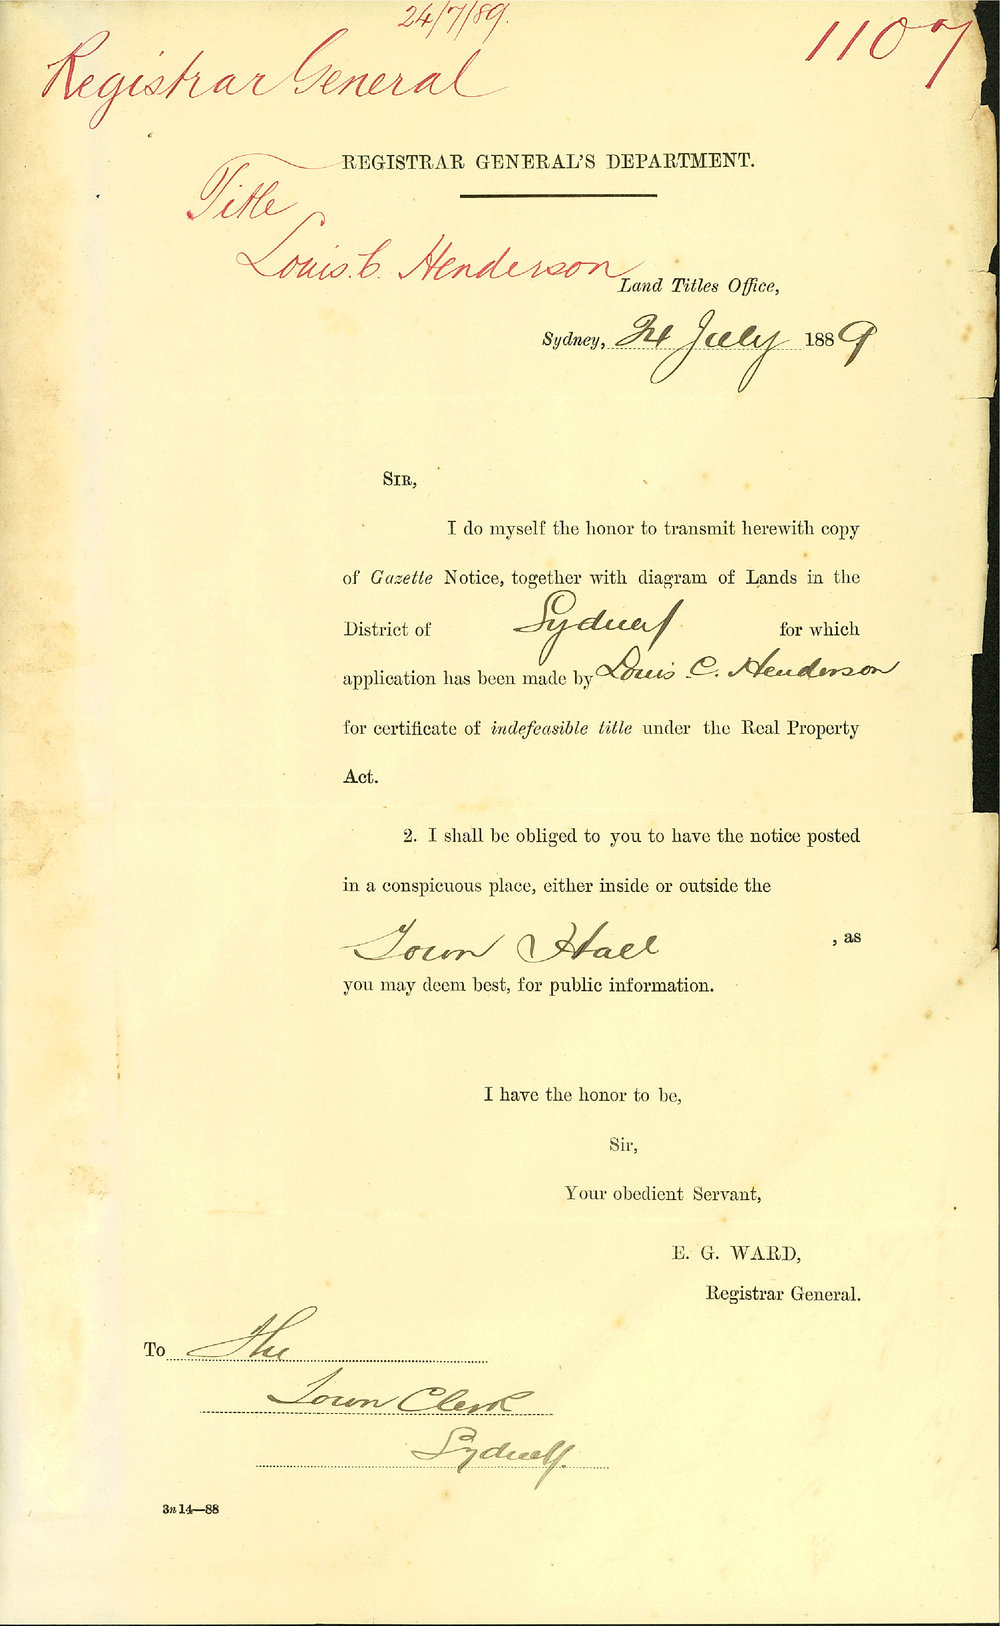 24/7/89.
1107
Registrar General
REGISTRAR GENERAL'S DEPARTMENT.
Title
Louis. C. Henderson
Land Titles Office,
Sydney, 24 July 1889
SIR,
I do myself the honor to transmit herewith copy
of Gazette Notice, together with diagram of Lands in the
District of Sydney for which
application has been made by Louis C. Henderson
for certificate of indefeasible title under the Real Property
Act.
2. I shall be obliged to you to have the notice posted
in a conspicuous place, either inside or outside the
Town Hall , as
you may deem best, for public information.
I have the honor to be,
Sir,
Your obedient Servant,
E. G. WARD,
Registrar General.
To The
Town Clerk
Sydney.
3n 14—88